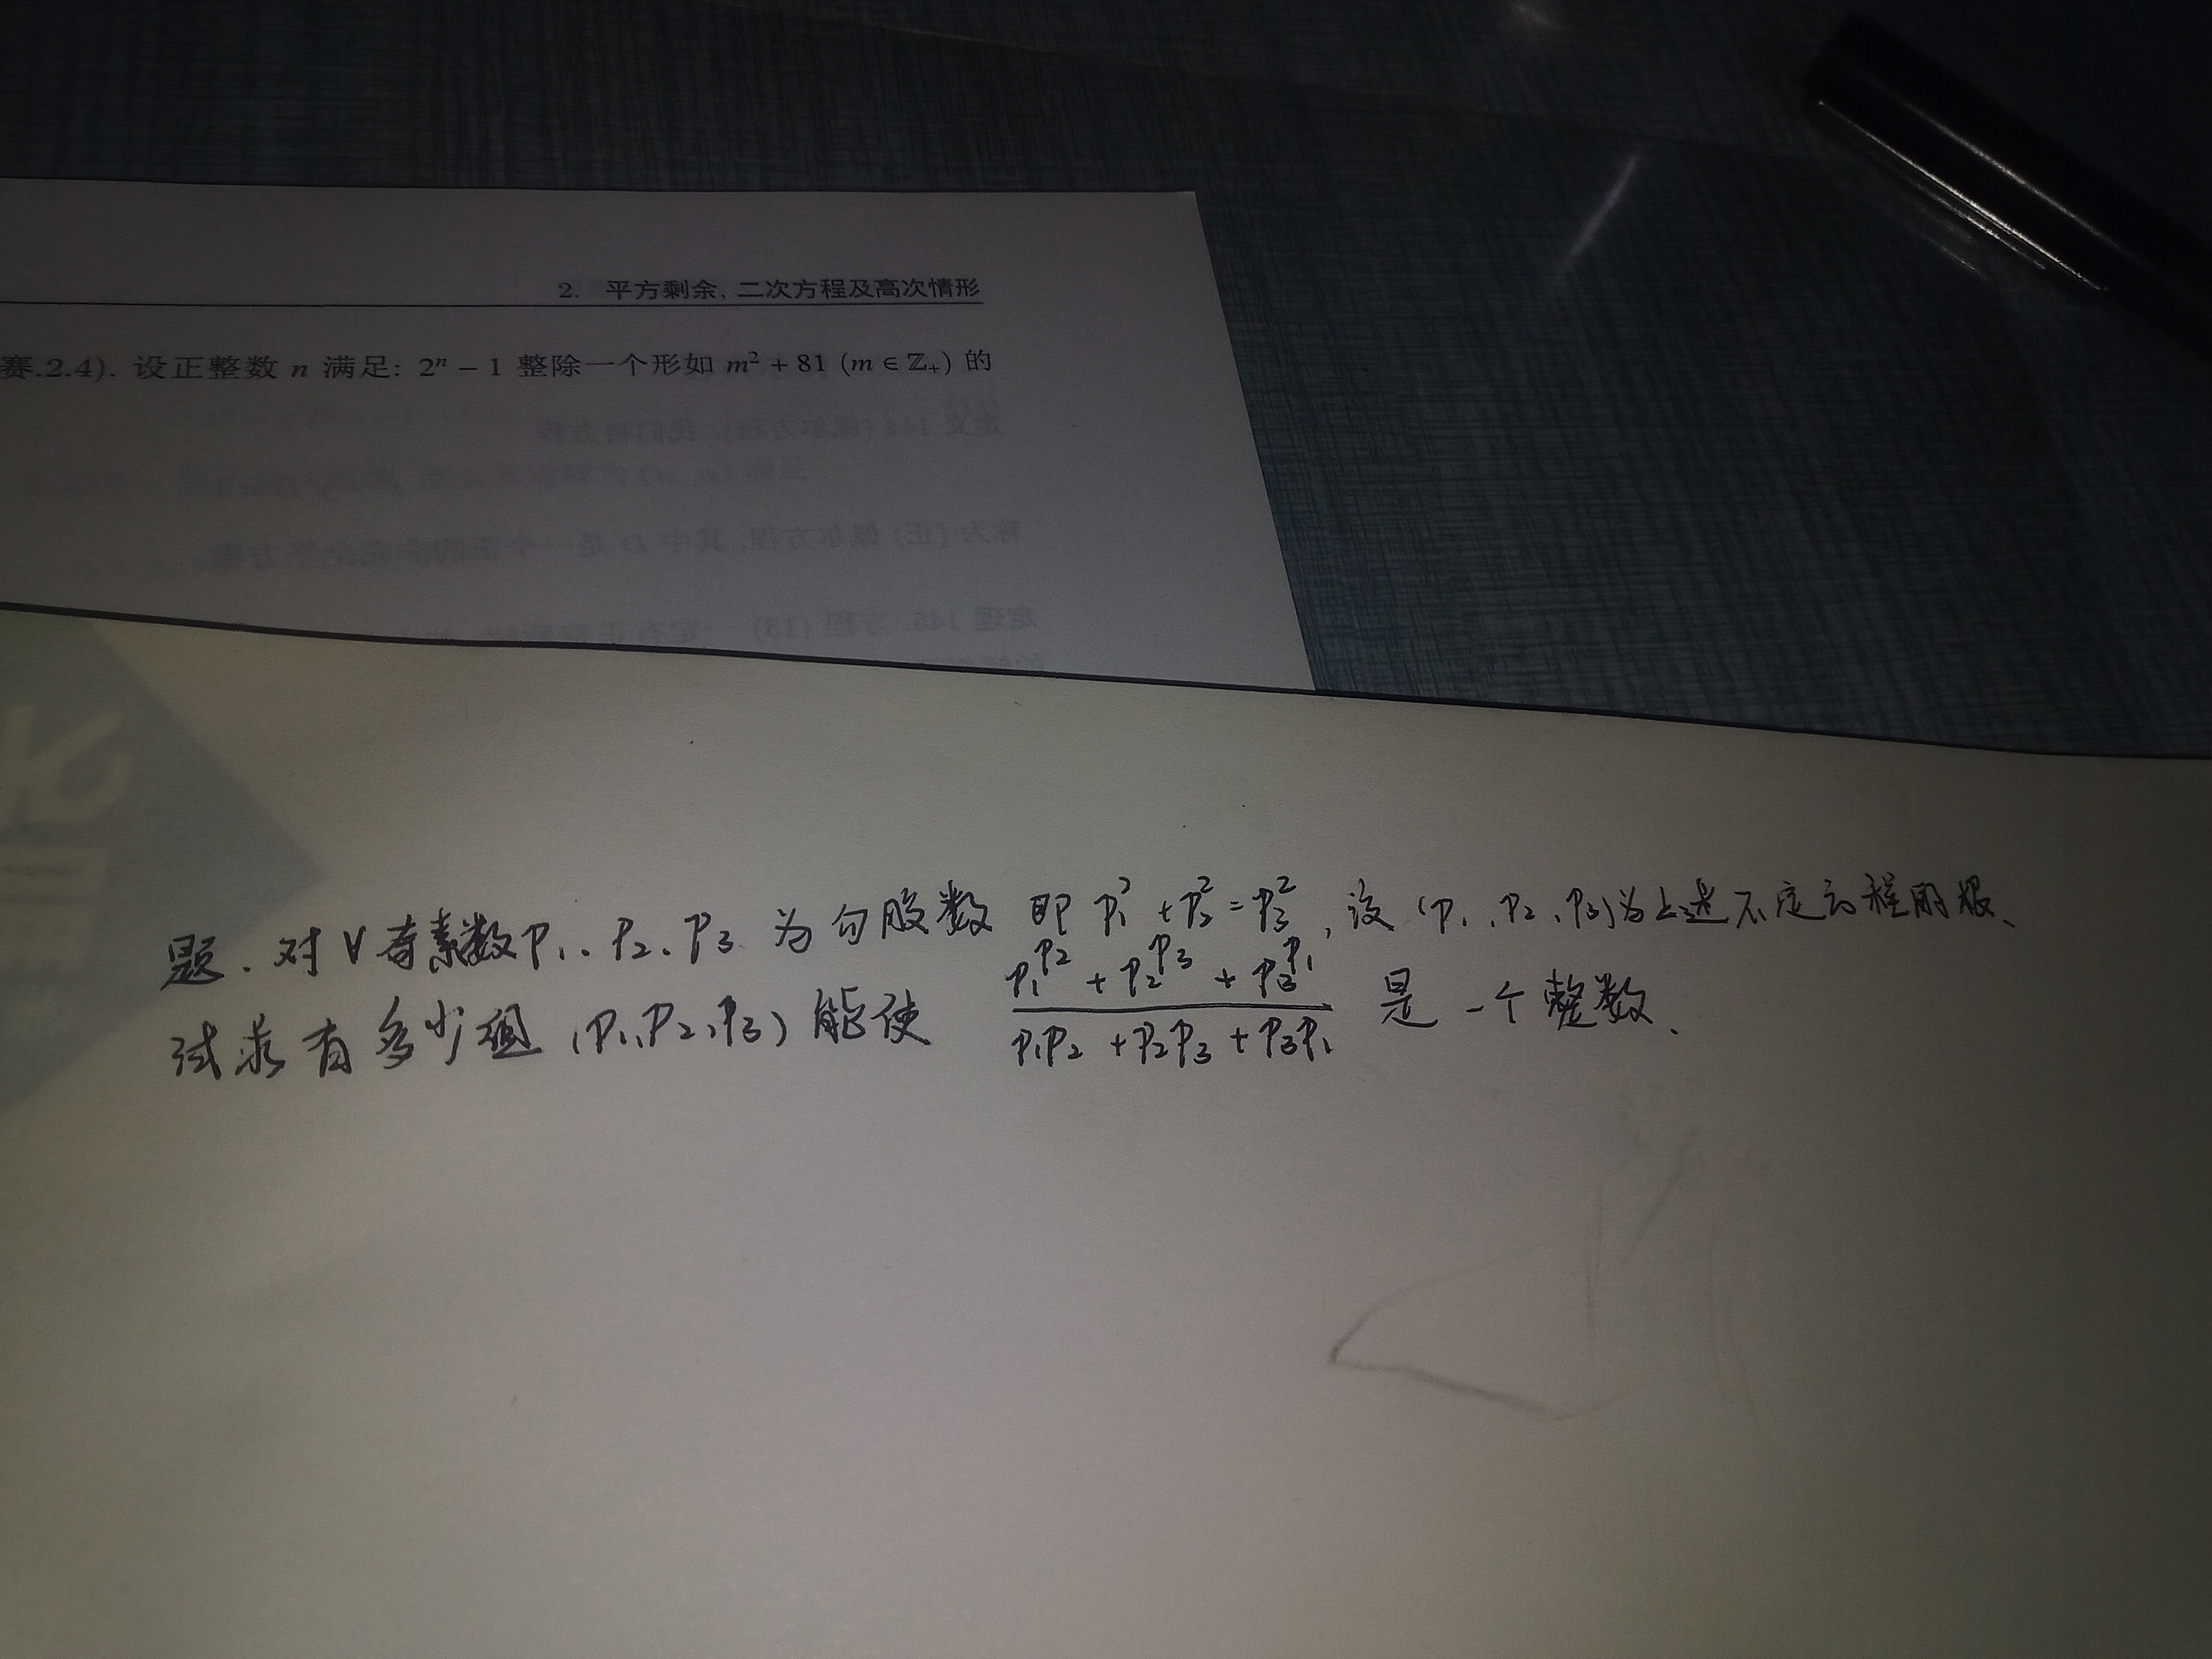 2. 平方剩余, 二次方程及高次情形
赛.2.4). 设正整数 n 满足: 2ⁿ − 1 整除一个形如 m² + 81 (m ∈ ℤ₊) 的
题. 对∀奇素数P₁、P₂、P₃ 为勾股数 即 P₁² + P₂² = P₃², 设 (P₁、P₂、P₃)为上述不定方程的根、
试求有多少组 (P₁, P₂, P₃) 能使 (P₁^P₂ + P₂^P₃ + P₃^P₁)/(P₁P₂ + P₂P₃ + P₃P₁) 是一个整数.